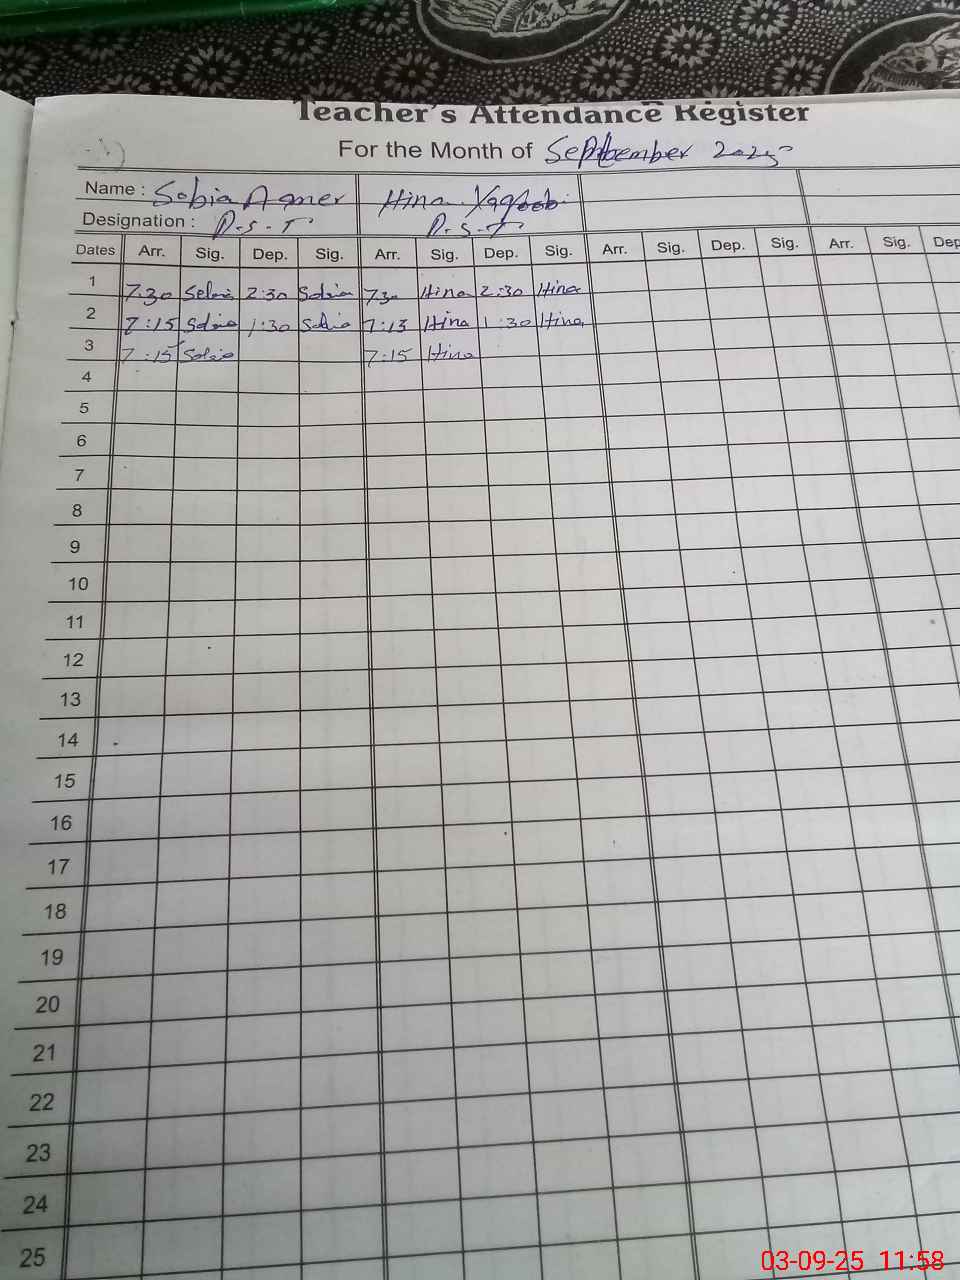 Teacher's Attendance Register
For the Month of September 2025
Name : Sobia Amer Hina Yaqoob
Designation : P.S.T P.S.T
Dates Arr. Sig. Dep. Sig. Arr. Sig. Dep. Sig. Arr. Sig. Dep. Sig. Arr. Sig. Dep
1 7:30 Sobia 2:30 Sobia 7:30 Hina 2:30 Hina
2 7:15 Sobia 1:30 Sobia 7:15 Hina 1:30 Hina
3 7:15 Sobia 7:15 Hina
4
5
6
7
8
9
10
11
12
13
14
15
16
17
18
19
20
21
22
23
24
25
03-09-25 11:58